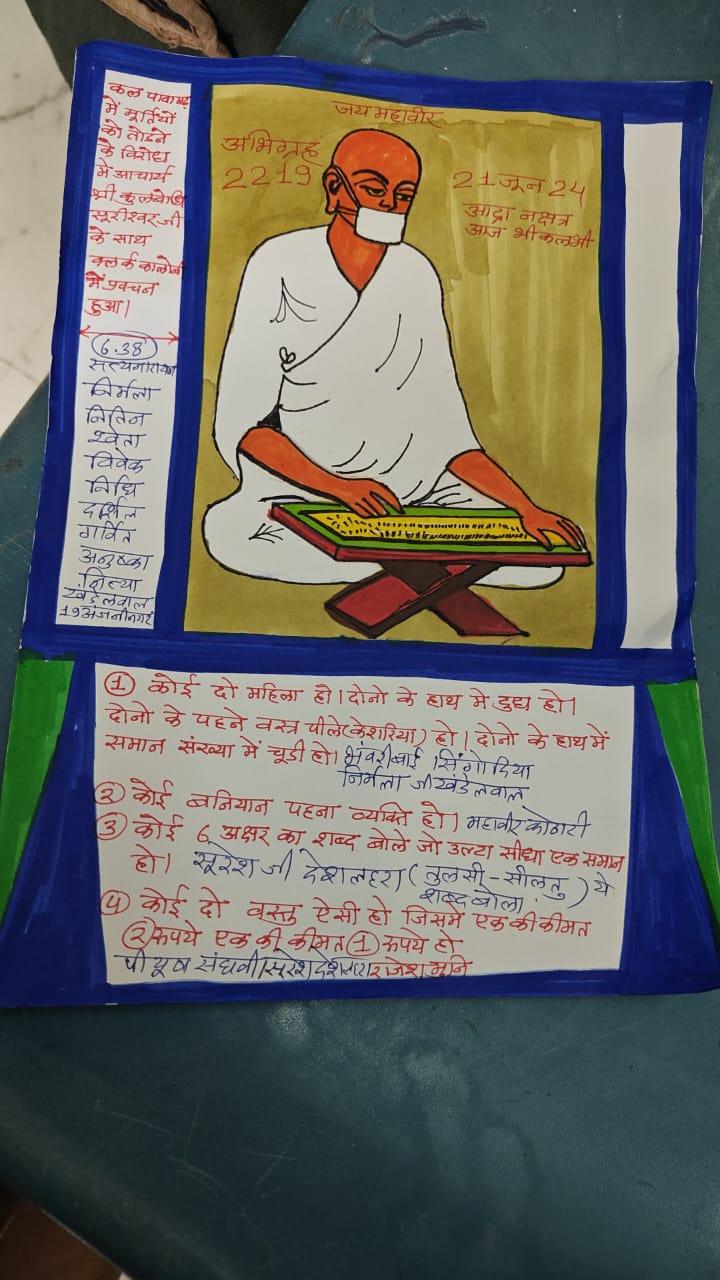 जय महावीर
अभिग्रह
2219
21 जून 24
आद्रा नक्षत्र
आज भी कल भी
कल पावागढ़
में मूर्तियों
को तोडने
के विरोध
मे आचार्य
श्री कुलबोधि
सूरीश्वर जी
के साथ
क्लर्क कालोनी
में प्रवचन
हुआ।
6.38
सत्यनारायण
निर्मला
नितिन
श्वेता
विवेक
निधि
दर्शिल
गर्वित
अनुष्का
नित्या
खंडेलवाल
19 अंजनीनगर
① कोई दो महिला हो। दोनो के हाथ मे दुध हो।
दोनो के पहने वस्त्र पीले (केशरिया) हो। दोनो के हाथ में
समान संख्या में चूडी हो। भंवरीबाई सिंगोदिया
निर्मला जी खंडेलवाल
② कोई बनियान पहना व्यक्ति हो। महावीर कोठारी
③ कोई 6 अक्षर का शब्द बोले जो उल्टा सीधा एक समान
हो। सूरेश जी देशलहरा (तुलसी - सीलतु) ये
शब्द बोला.
④ कोई दो वस्तु ऐसी हो जिसमे एक की कीमत
② रूपये एक की कीमत ① रूपये हो
पीयूष संघवी। सुरेश देशलहरा राजेश मुनि